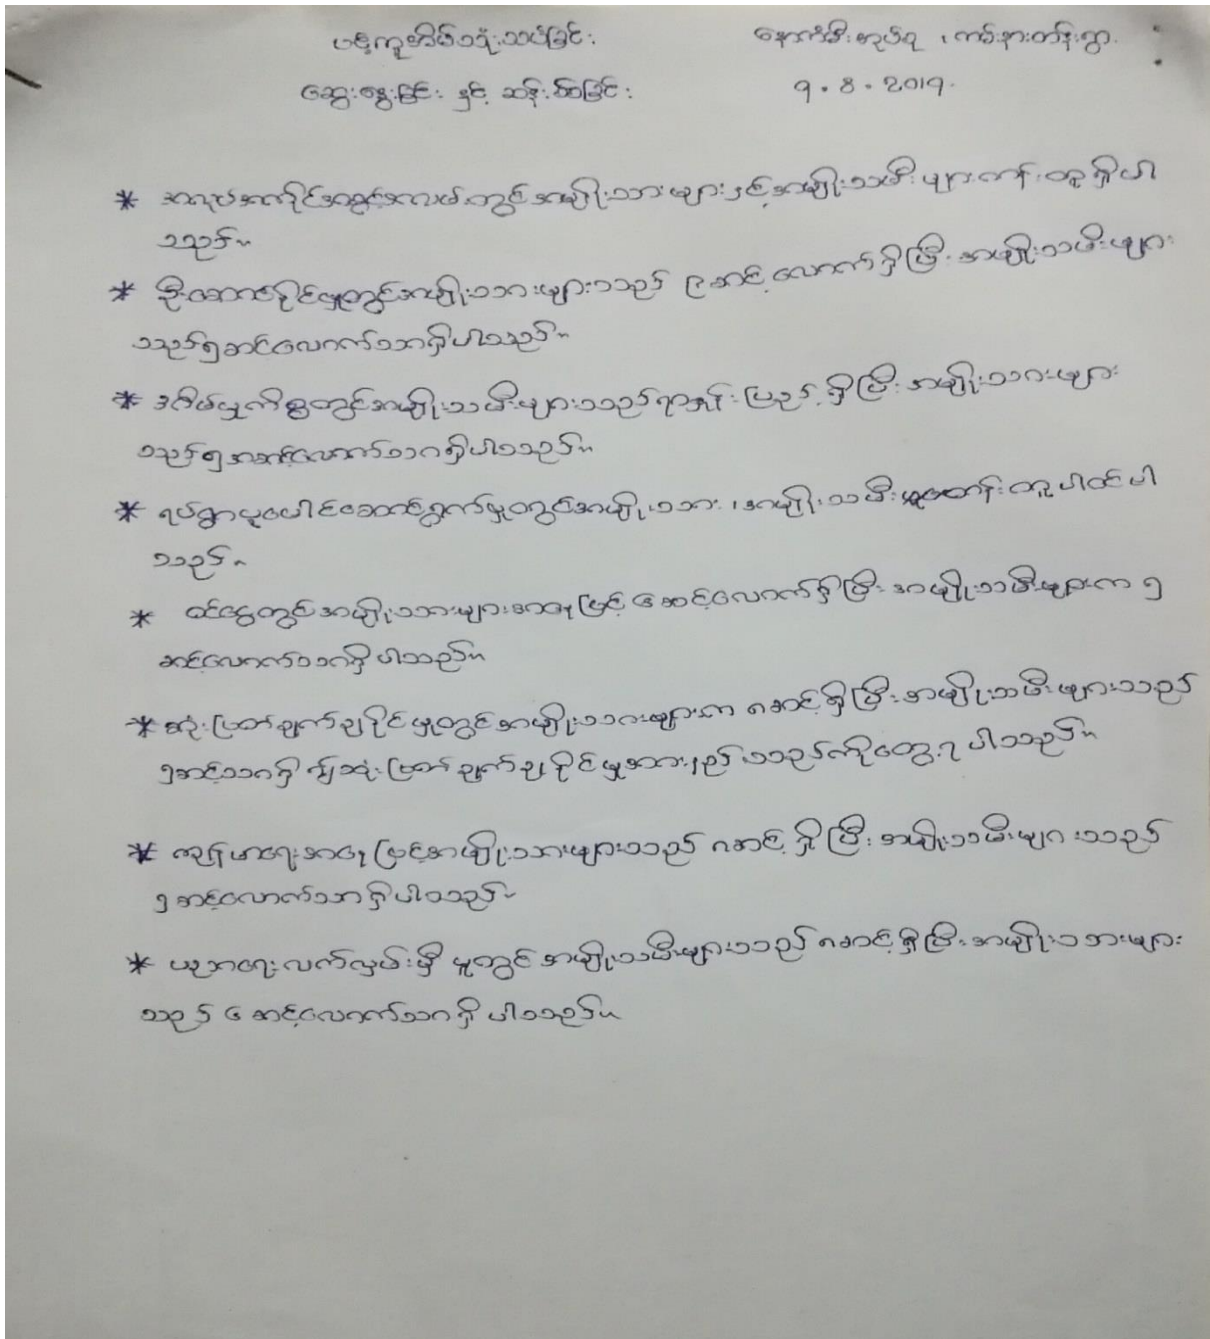 ပဥ္စကူအိမ်သုံးသပ်ခြင်း နောက်မီးအုပ်စု ၊ ကမ်းနားတန်းရွာ
ဆွေးနွေးခြင်း နှင့် ဆန်းစစ်ခြင်း ၇.၆.၂၀၁၇.
* အလုပ်အကိုင်အခွင့်အလမ်းတွင်အမျိုးသားများနှင့်အမျိုးသမီးများတန်းတူရှိပါ
သည်။
* ဦးဆောင်နိုင်မှုတွင်အမျိုးသားများသည် ၉ဆင့်လောက်ရှိပြီး အမျိုးသမီးများ
သည်၅ဆင့်လောက်သာရှိပါသည်။
* အိမ်မှုကိစ္စတွင်အမျိုးသမီးများသည်ရာနှုန်းပြည့်ရှိပြီး အမျိုးသားများ
သည်၅အဆင့်လောက်သာရှိပါသည်။
* ရပ်ရွာပူးပေါင်းဆောင်ရွက်မှုတွင်အမျိုးသား၊အမျိုးသမီး တန်းတူပါဝင်ပါ
သည်။
* ဝင်ငွေတွင်အမျိုးသားများအနေဖြင့် ၆ဆင့်လောက်ရှိပြီး အမျိုးသမီးများက ၅
ဆင့်လောက်သာရှိပါသည်။
* ဆုံးဖြတ်ချက်ချနိုင်မှုတွင်အမျိုးသားများက ၈ဆင့်ရှိပြီး အမျိုးသမီးများသည်
၅ဆင့်သာရှိ၍ဆုံးဖြတ်ချက်ချနိုင်မှုအားနည်းသည်ကိုတွေ့ရပါသည်။
* ကျန်းမာရေးအနေဖြင့်အမျိုးသားများသည် ၈ဆင့်ရှိပြီး အမျိုးသမီးများသည်
၅ဆင့်လောက်သာရှိပါသည်။
* ပညာရေးလက်လှမ်းမှီမှုတွင်အမျိုးသမီးများသည် ၈ဆင့်ရှိပြီးအမျိုးသားများ
သည် ၆ ဆင့်လောက်သာရှိပါသည်။